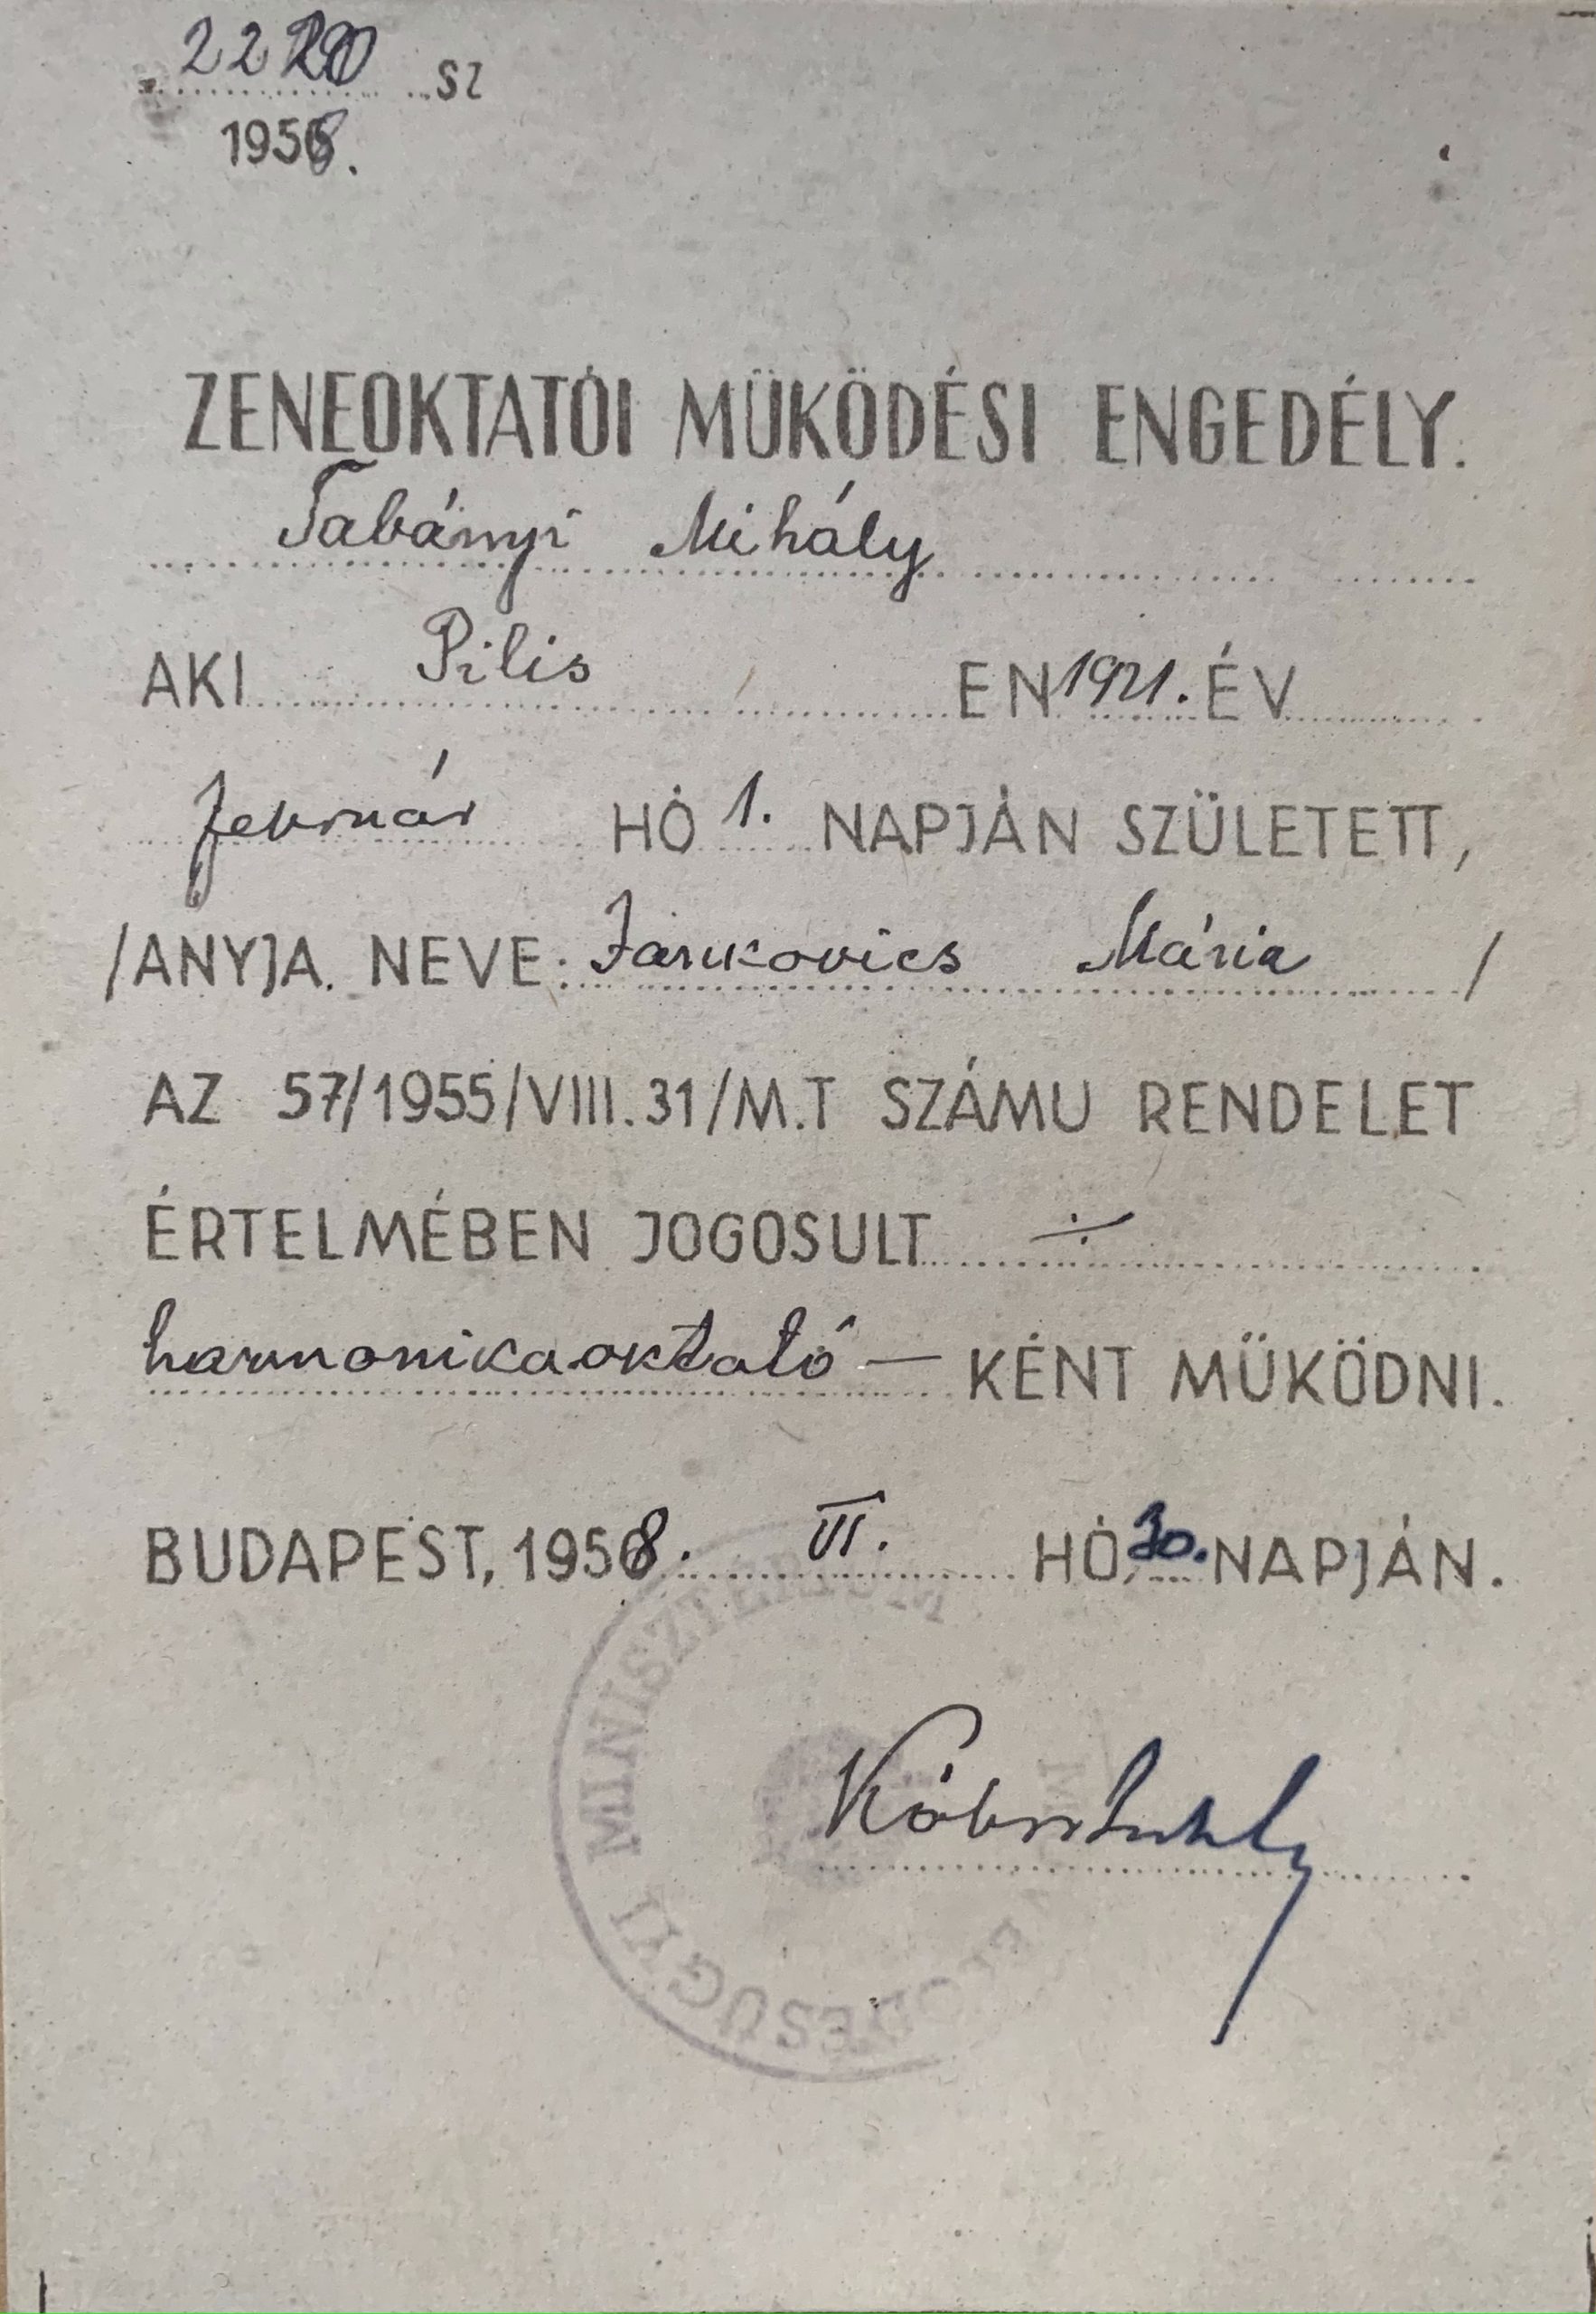 22 sz
1958.
ZENEOKTATÓI MÜKÖDÉSI ENGEDÉLY.
Tabányi Mihály
AKI Pilis EN 1921. ÉV
február HÓ 1. NAPJÁN SZÜLETETT,
/ANYJA. NEVE: Jankovics Mária /
AZ 57/1955/VIII.31/M.T SZÁMU RENDELET
ÉRTELMÉBEN JOGOSULT ÷
harmonikaoktató — KÉNT MÜKÖDNI.
BUDAPEST, 1958. VI. HÓ 30. NAPJÁN.
MŰVELŐDÉSÜGYI MINISZTÉRIUM